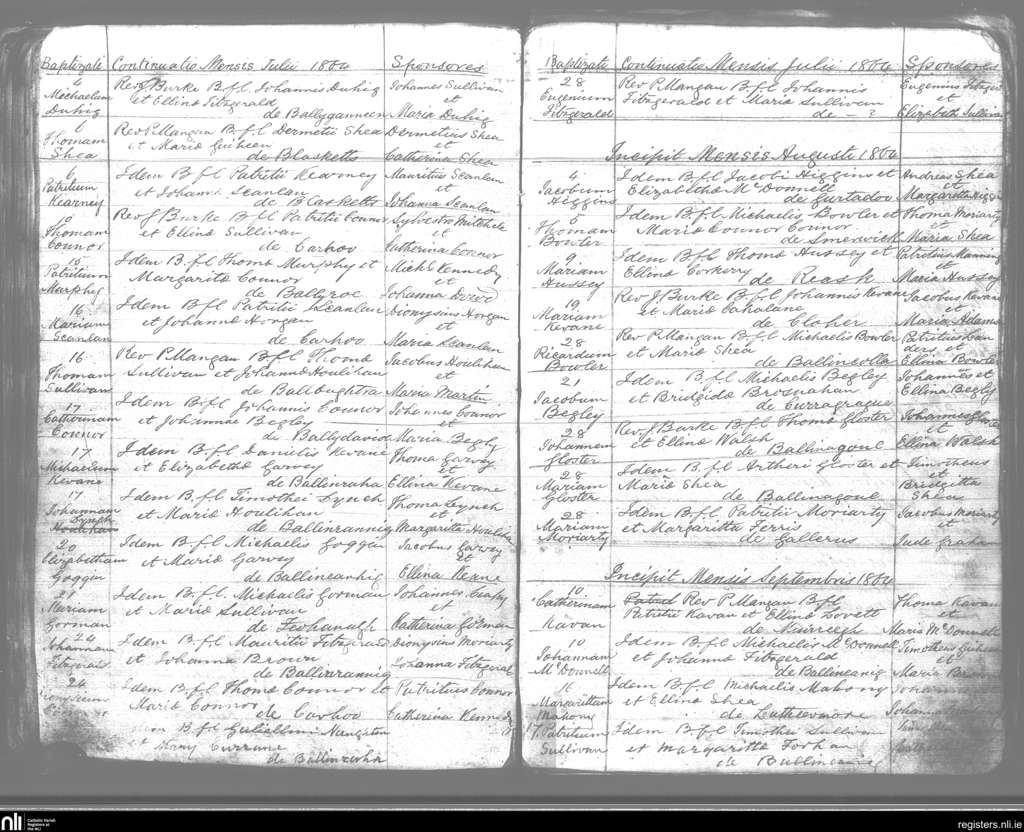 Baptizati Continuatio Mensis Julii 1864 Sponsores
4 Revd J Burke B.f.l. Johannis Duhig Johannes Sullivan
Michaelum et Ellina Fitzgerald et
Duhig de Ballyganneen Maria Duhig
6 Rev P. Mangan B.f.l Dermetii Shea Dermetius Shea
Thomam et Maria Guiheen et
Shea de Blasketts Catherina Shea
6 Idem B.f.l Patritii Kearney Mauritius Scanlan
Patritium et Johanna Scanlan et
Kearney de Blasketts Johanna Scanlan
10 Rev J Burke B.f.l Patritii Connor Sylvester Mitchele
Thomam et Ellina Sullivan et
Connor de Carhoo Catherina Connor
15 Idem B.f.l Thoma Murphy et Michl Kennedy
Patritium Margarita Connor et
Murphy de Ballyroe Johanna
16 Idem B.f.l Patritii Scanlan Dionysius Horgan
Mariam et Johanna Horgan et
Scanlan de Carhoo Maria Scanlan
16 Rev P. Mangan B.f.l Thoma Jacobus Houlihan
Thomam Sullivan et Johanna Houlihan et
Sullivan de Balloughtra Maria Martin
17 Idem B.f.l Johannis Connor Johannes Connor
Catherinam et Johannae Begley et
Connor de Ballydavid Maria Begly
17 Idem B.f.l Danielis Kevane Thoma Garvey
Michaelum et Elizabetha Garvey et
Kevane de Ballinraha Ellina Kevane
17 Idem B.f.l Timothei Lynch Thoma Leynch
Johannam et Maria Houlihan et
Lynch
Houlahan de Ballinrannig Margaritta Houlihan
20 Idem B.f.l Michaelis Goggin Jacobus Garvey
Elizabetham et Maria Garvey et
Goggin de Ballineanhig Ellena Keane
21 Idem B.f.l. Michaelis Gorman Johannes Leahy
Mariam et Maria Sullivan et
Gorman de Feohanagh Catherina Gorman
24 Idem B.f.l Mauritii Fitzgerald Dionysius Moriarty
Johannam et Johanna Brown et
Fitzgerald de Ballinrannig Johanna Fitzgerald
24 Idem B.f.l Thoma Connor et Patritius Connor
Maria Connor
de Carhoo Catherina Kennedy
B.f.l Gulielmi Naughton
et Mary Currane
de Ballinrehha
Baptizati Continuatio Mensis Julii 1864 Sponsores
28 Rev P. Mangan B.f.l Johannis Eugenius Fitzger
Eugenium Fitzgerald et Maria Sullivan et
Fitzgerald de - ? Elizabeth Sulliva
Incipit Mensis Augusti 1864
4 Idem B.f.l Jacobi Higgins et Andreas Shea
Jacobum Elizabetha McDonnell et
Higgins de Gurtadoo Margaretta Higgi
5 Idem B.f.l. Michaelis Bowler et Thoma Moriarty
Thomam Maria Connor Connor et
Bowler de Smerwick Maria Shea
9 Idem B.f.l Thoma Hussey et Patritius Manning
Mariam Ellina Corkery et
Hussey de Reask Maria Hussey
19 Rev J. Burke B.f.l Johannis Kevane Jacobus Kevane
Mariam et Maria Cahalane et
Kevane de Cloher Maria Adams
28 Rev P. Mangan B.f.l Michaelis Bowler Patritius
Ricardum et Maria Shea et
Bowler de Ballincolla Ellina Bowler
21 Idem B.f.l Michaelis Begley Johannes et
Jacobum et Bridgida Brosnahan Ellina Begley
Begley de Curragraigue
28 Rev. J Burke B.f.l Thoma Gloster Johannes
Johannem et Ellina Walsh et
Gloster de Ballinagoul Ellina Walsh
28 Idem B.f.l Artheri Gloster et Timotheus
Mariam Maria Shea et
Gloster de Ballinagoul Bridgitta Shea
28 Idem B.f.l Patritii Moriarty Jacobus Moriarty
Mariam et Margaritta Ferris et
Moriarty de Gallerus Jude Graham
Incipit Mensis Septembris 1864
10 Rev P Mangan B.f.l Thoma Kavan
Catherinam Patritii Kavan et Ellina Lovett et
Kavan Maria McDonnell
10 Idem B.f.l Michaelis McDonnell Timotheus
Johannam et Johanna Fitzgerald et
McDonnell de Ballineanig Maria
16 Idem B.f.l Michaelis Mahony
Margarittam et Ellina Shea
Mahony de
17 Patritium Idem B.f.l Timothei Sullivan
Sullivan et Margaritta Feohan
de Ballineanig
nli Catholic Parish Registers at the NLI
registers.nli.ie